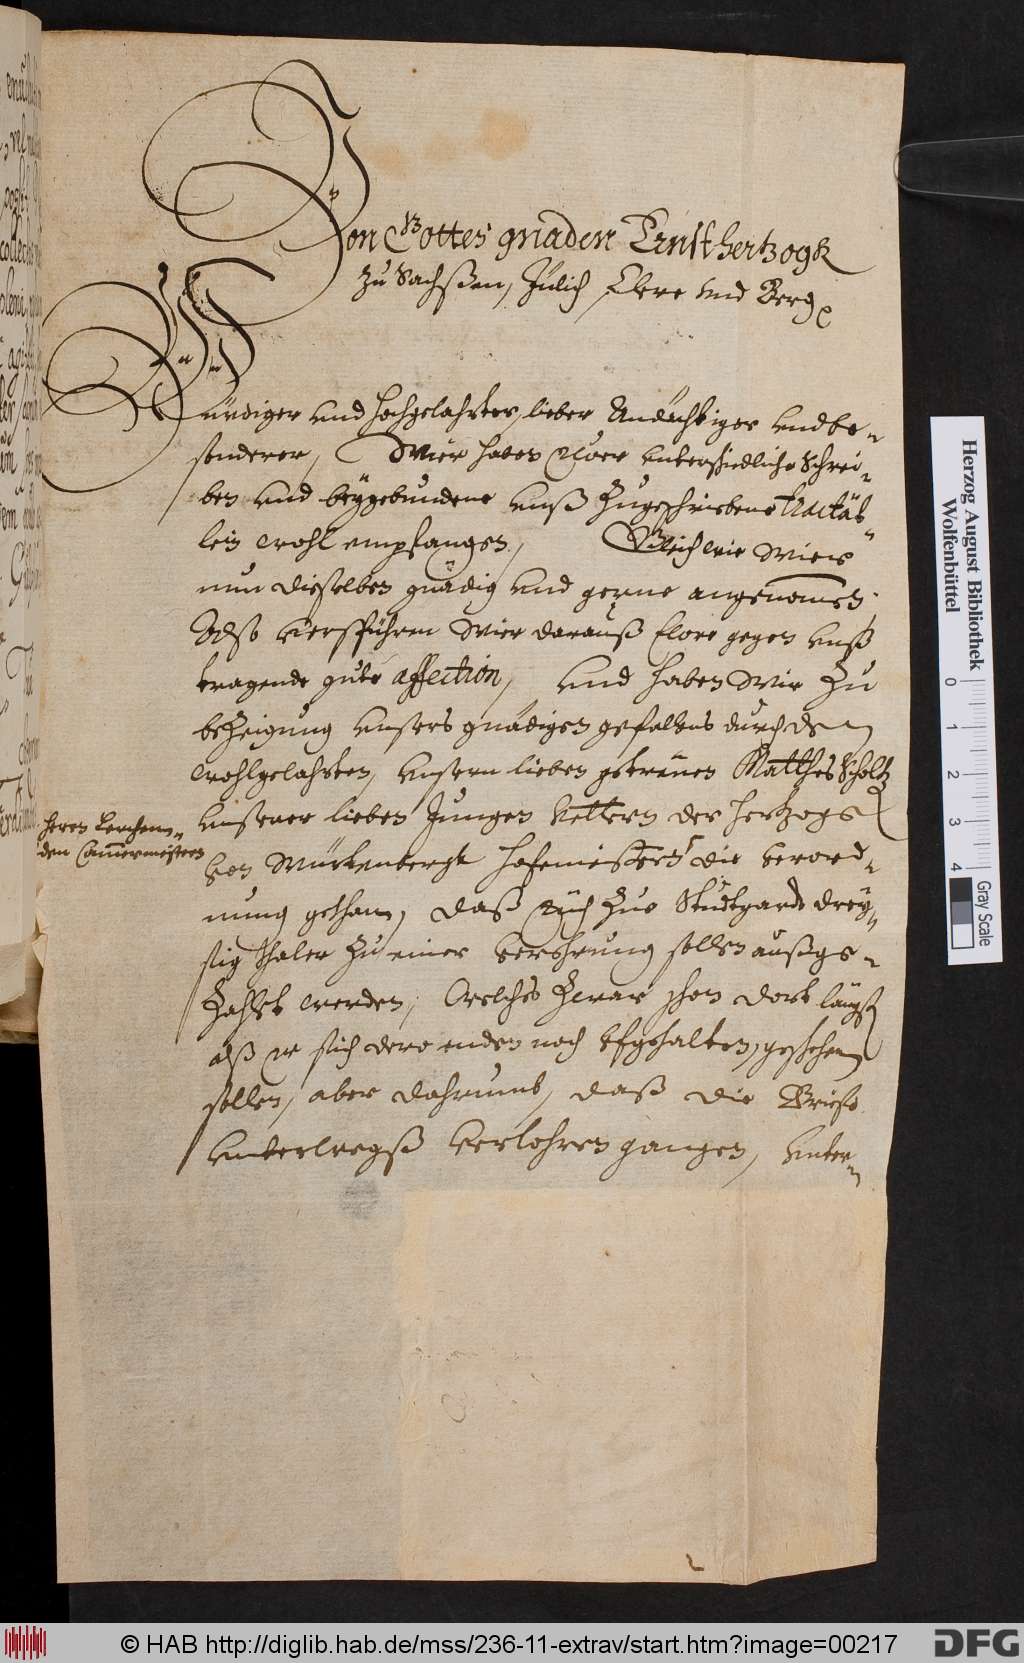 Von Gottes gnaden Ernst hertzogk
zu Sachßen, Jülich, Cleve und Berg
Würdiger und hochgelahrter, lieber Andächtiger und be-
sonderer, Wier haben Ewer unterschiedliche Schrei-
ben und beygebundene unß zugeschriebene Tractät-
lein wohl empfangen, Gleich wie Wier
nun dieselben gnädig und gerne angenomen
Alßo verspühren Wier darauß Ewre gegen unß
tragende gute affection, und haben Wir zu
bezeigung unsers gnädigen gefallens durch den
wohlgelahrten, unsern lieben getreuen Matthes Scholtz
unserer lieben Jungen Vettern der hertzoge
Herrn Lerchen-
den Cammermeistern
von Würtenbergk hofemeistern die verord-
nung gethan, daß Euch zue Studtgardt drey-
sig thaler zu einer verehrung sollen außge-
zahlt werden, Welches zwar schon dort längst
alß er sich dero enden noch ufgehalten, geschehen
sollen, aber dahrumb, daß die Briefe
unterwegß verlohren gangen, unter-
Herzog August Bibliothek
Wolfenbüttel
0 1 2 3 4
Gray Scale
© HAB http://diglib.hab.de/mss/236-11-extrav/start.htm?image=00217
DFG